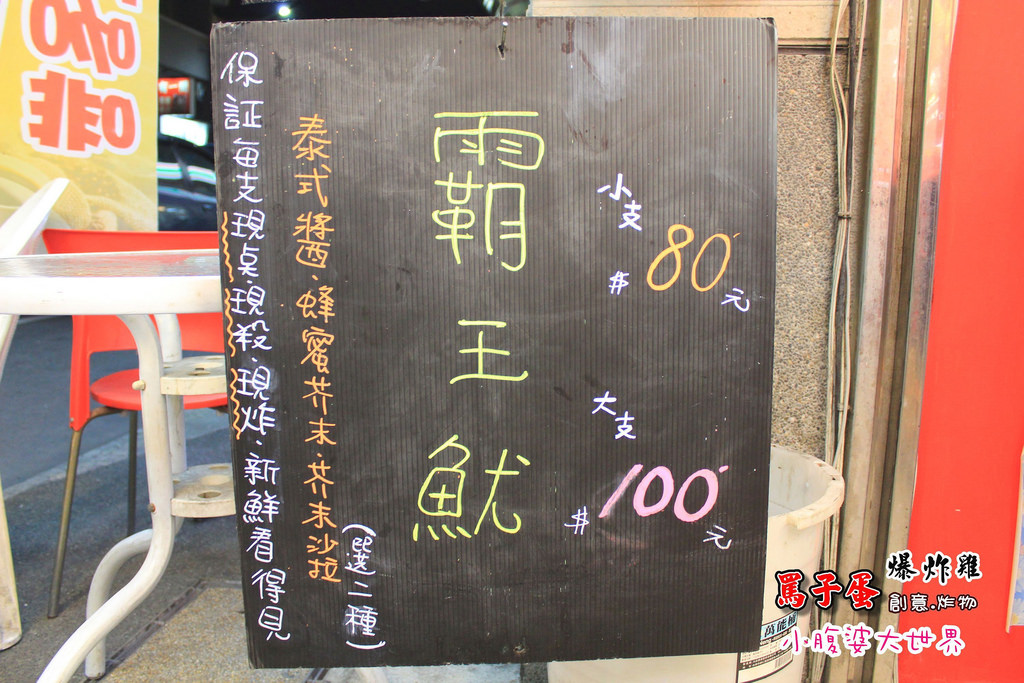 霸王魷
小支
#80元
大支
#100元
泰式將酉.蜂蜜芥末.芥末沙拉
(選二種)
保証每支現桌.現殺.現炸.新鮮看得見
咖啡
罵子蛋
爆炸雞
創意.炸物
小腹婆大世界
萬能桶